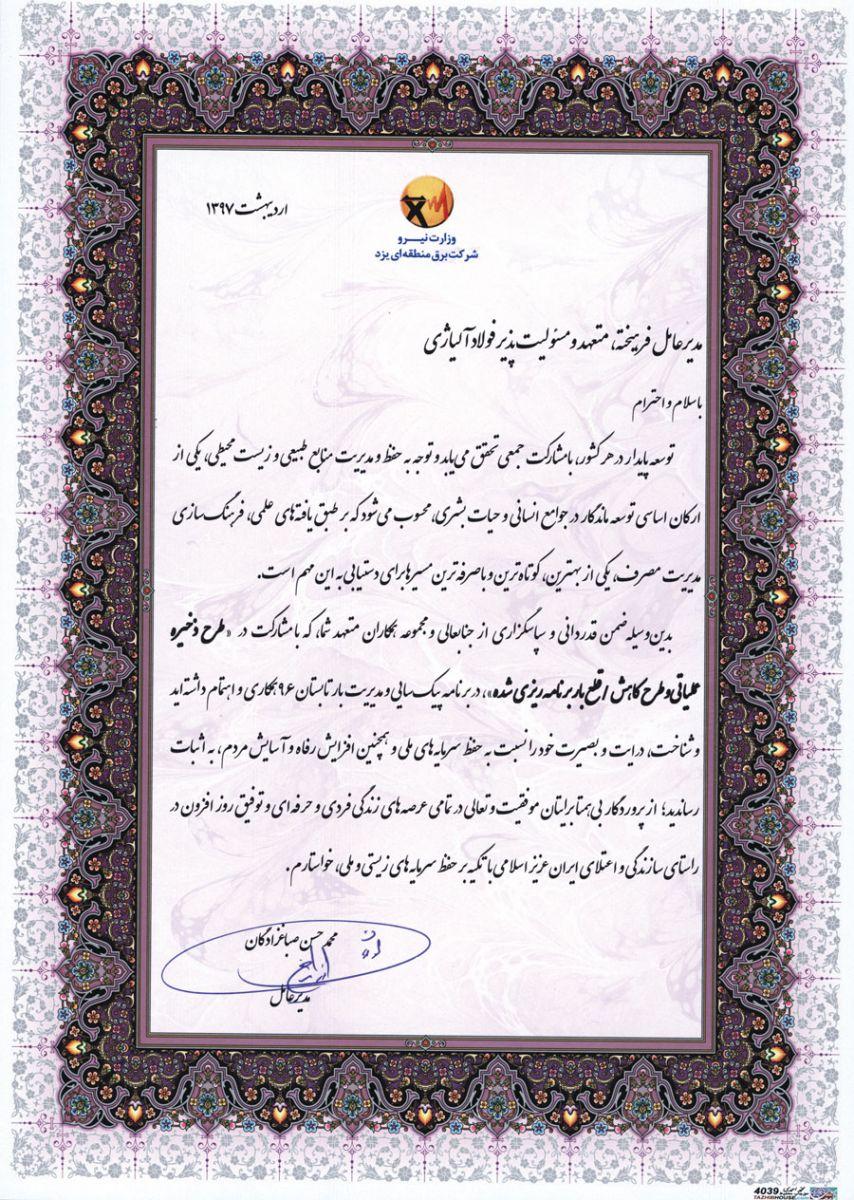 اردیبهشت ۱۳۹۷
وزارت نیرو
شرکت برق منطقه‌ای یزد
مدیرعامل فرهیخته، متعهد و مسئولیت پذیر فولاد آلیاژی
باسلام و احترام
توسعه پایدار در هر کشور، با مشارکت جمعی تحقق می‌یابد و توجه به حفظ و مدیریت منابع طبیعی و زیست محیطی، یکی از
ارکان اساسی توسعه ماندگار در جوامع انسانی و حیات بشری، محسوب می‌شود که بر طبق یافته‌های علمی، فرهنگ سازی
مدیریت مصرف، یکی از بهترین، کوتاه‌ترین و باصرفه‌ترین مسیرها برای دستیابی به این مهم است.
بدین وسیله ضمن قدردانی و سپاسگزاری از جنابعالی و مجموعه همکاران متعهد شما، که با مشارکت در «طرح ذخیره
عملیاتی و طرح کاهش / قطع بار برنامه ریزی شده»، در برنامه پیک سایی و مدیریت بار تابستان ۹۶ همکاری و اهتمام داشته‌اید
و شناخت، درایت و بصیرت خود را نسبت به حفظ سرمایه‌های ملی و همچنین افزایش رفاه و آسایش مردم، به اثبات
رساندید؛ از پروردگار بی‌همتا برایتان موفقیت و تعالی در تمامی عرصه‌های زندگی فردی و حرفه‌ای و توفیق روز افزون در
راستای سازندگی و اعتلای ایران عزیز اسلامی با تکیه بر حفظ سرمایه‌های زیستی و ملی، خواستارم.
محمد حسن صباغزادگان
مدیرعامل
4039
TAZHIBHOUSE.com